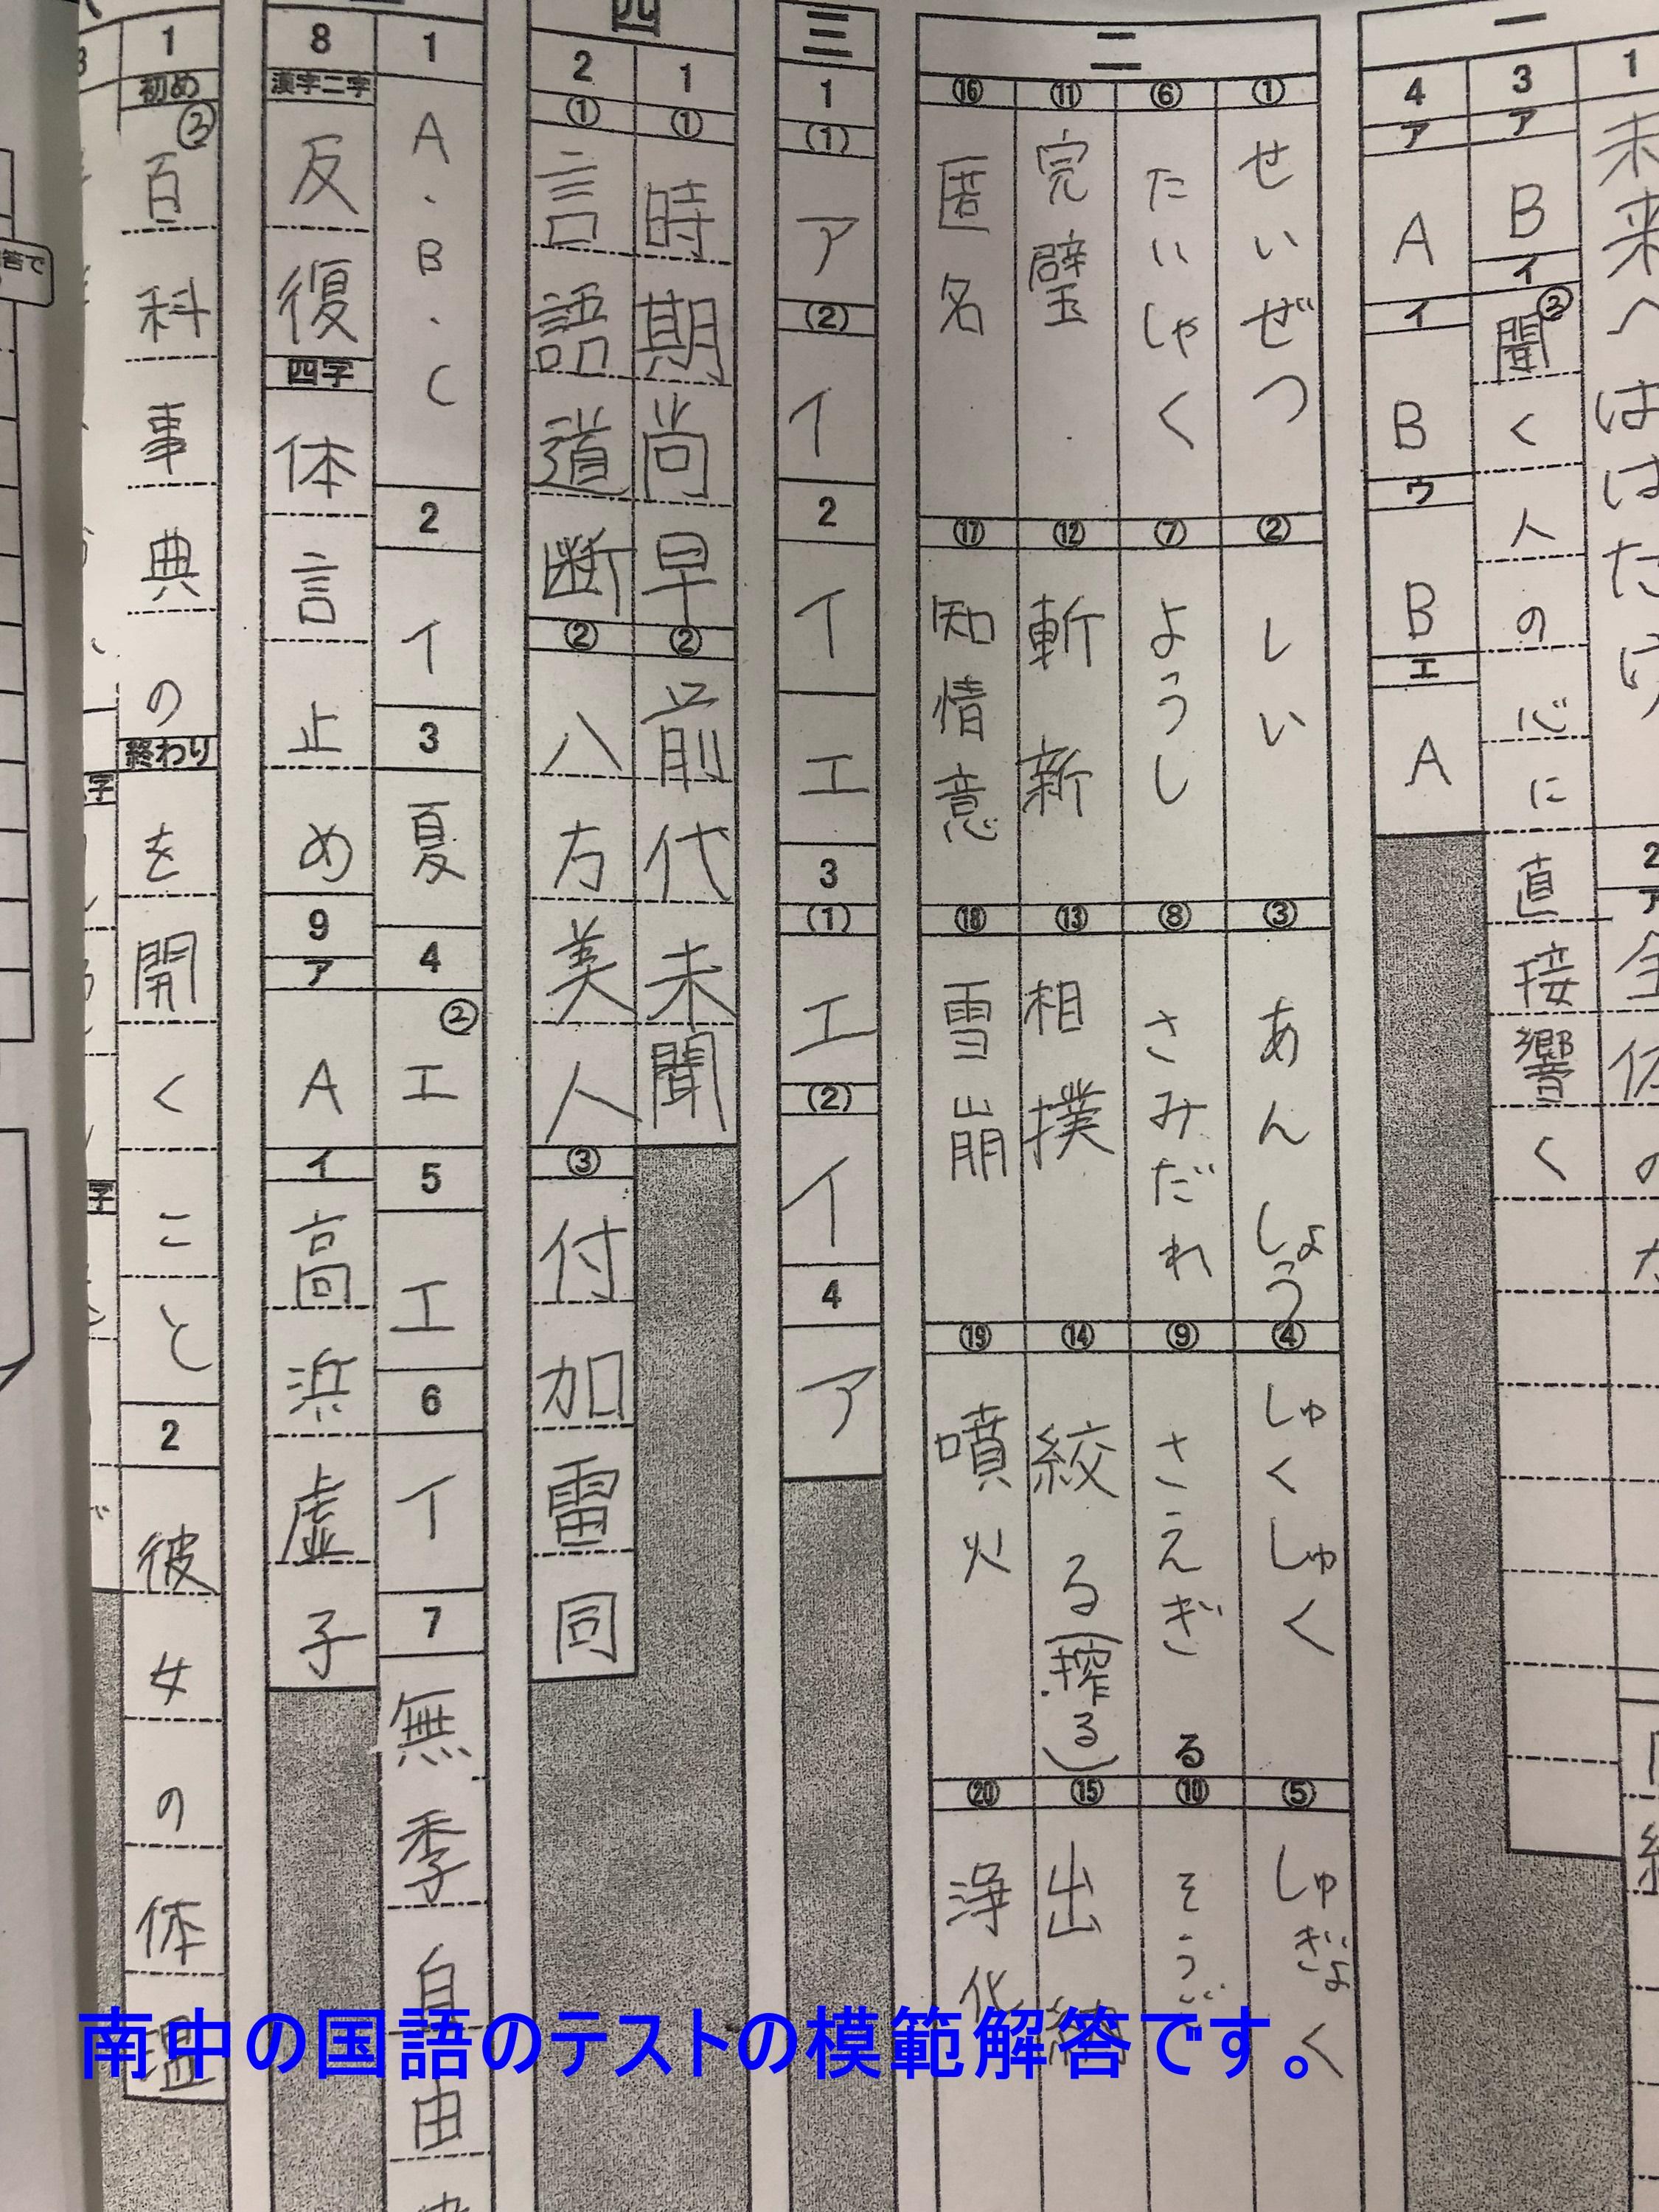 一
1
未来へはばたけ
2
ア
全体の
3
ア
B
イ
②
聞く人の心に直接響く
4
ア
A
イ
B
ウ
B
エ
A
二
①
せいぜつ
②
しい
③
あんしょう
④
しゅくしゅく
⑤
しゅぎょく
⑥
たいしゃく
⑦
ようし
⑧
さみだれ
⑨
さえぎる
⑩
⑪
完璧
⑫
斬新
⑬
相撲
⑭
絞る(搾る)
⑮
出納
⑯
匿名
⑰
知情意
⑱
雪崩
⑲
噴火
⑳
浄化
三
1
(1)
ア
(2)
イ
2
イ
エ
3
(1)
エ
(2)
イ
4
ア
四
1
①
時期尚早
②
前代未聞
2
①
言語道断
②
八方美人
③
付加雷同
1
A.B.C
2
イ
3
夏
4
②
エ
5
エ
6
イ
7
無季自由
8
漢字二字
反復
四字
体言止め
9
ア
A
イ
高浜虚子
1
初め
③
百科事典の
終わり
を開くこと
2
彼女の体温
南中の国語のテストの模範解答です。